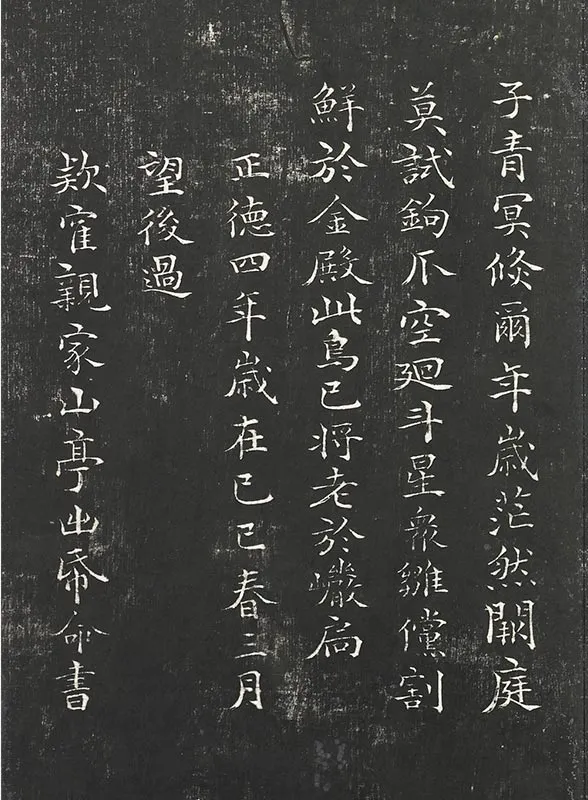 子青冥倐爾年歲茫然闕庭
莫試鉤爪空迴斗星衆雛儻割
鮮於金殿此鳥已將老於巖扃
正德四年歲在己巳春三月
望後過
欵寉親家山亭出帋命書